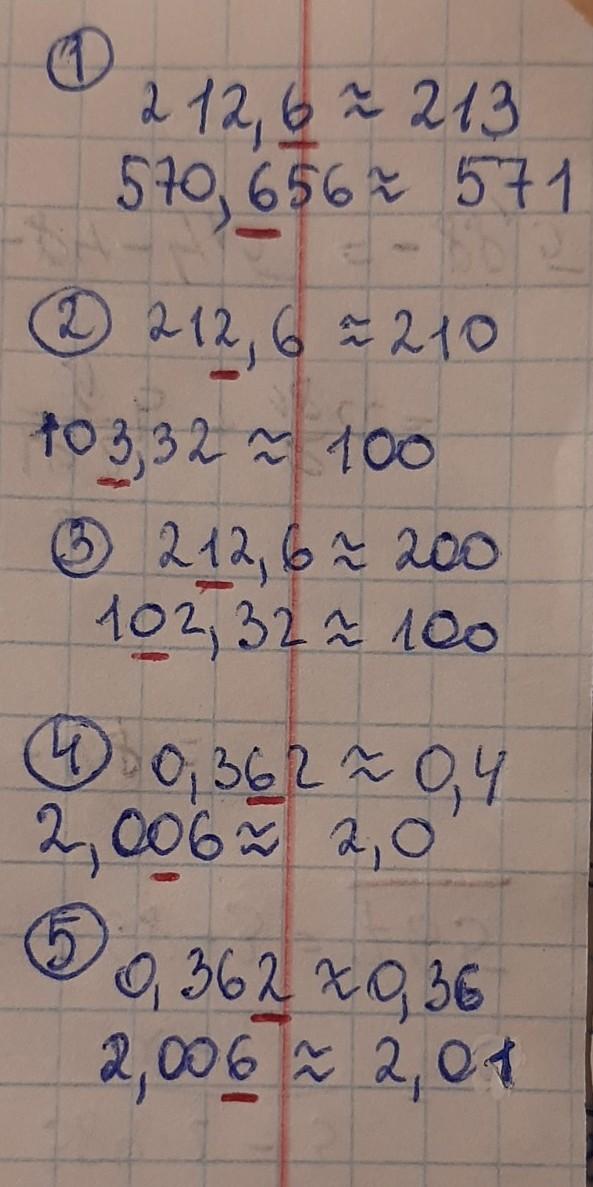 1
212,6 ≈ 213
570,656 ≈ 571
2 212,6 ≈ 210
103,32 ≈ 100
3 212,6 ≈ 200
102,32 ≈ 100
4 0,362 ≈ 0,4
2,006 ≈ 2,0
5
0,362 ≈ 0,36
2,006 ≈ 2,01